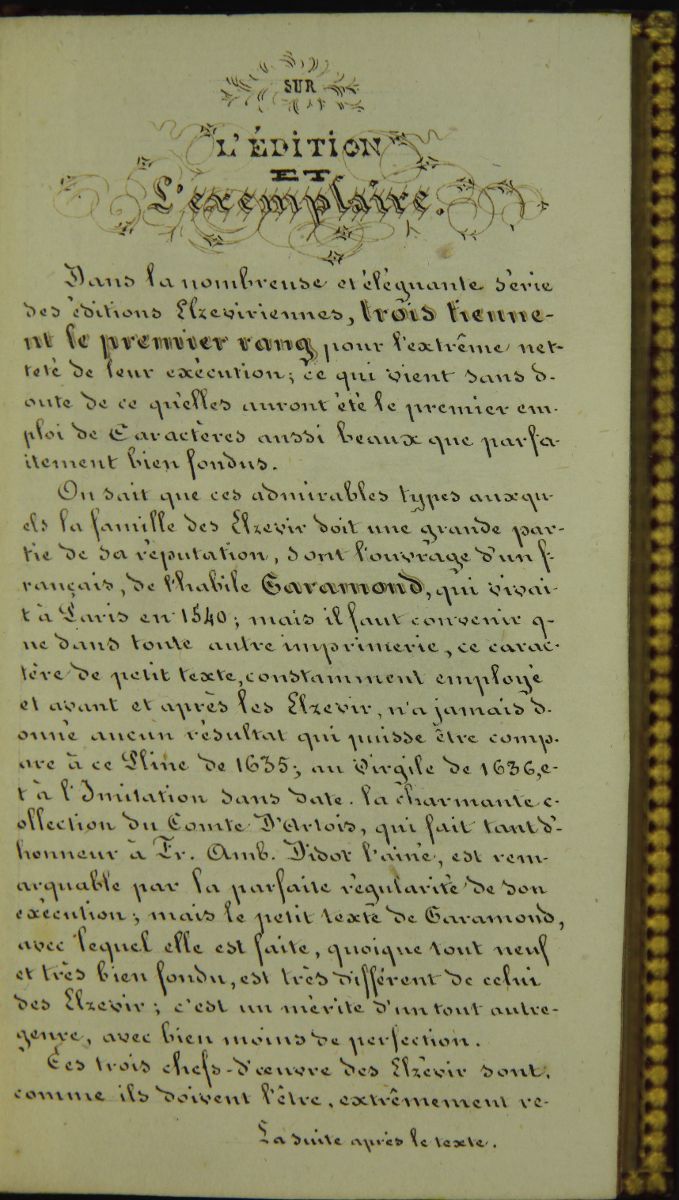 SUR
L'ÉDITION
ET
L'exemplaire.
Dans la nombreuse et élégnante série
des éditions Elzeviriennes, trois tienne-
nt le premier rang pour l'extrême net-
teté de leur exécution; ce qui vient sans d-
oute de ce qu'elles auront été le premier em-
ploi de Caractères aussi beaux que parfa-
itement bien fondus.
On sait que ces admirables types auxqu-
els la famille des Elzevir doit une grande par-
tie de sa réputation, sont l'ouvrage d'un f-
rançais, de l'habile Garamond, qui vivai-
t à Paris en 1540; mais il faut convenir q-
ue dans toute autre imprimerie, ce carac-
tère de petit texte, constamment employé
et avant et après les Elzevir, n'a jamais d-
onné aucun résultat qui puisse être comp-
aré à ce Pline de 1635; au Virgile de 1636, e-
t à l'Imitation sans date. la charmante c-
ollection du Comte D'Artois, qui fait tant d'-
honneur à Fr. Amb. Didot l'ainé, est rem-
arquable par la parfaite régularité de son
exécution; mais le petit texte de Garamond,
avec lequel elle est faite, quoique tout neuf
et très bien fondu, est très différent de celui
des Elzevir; c'est un mérite d'un tout autre-
genre, avec bien moins de perfection.
Ces trois chefs-d'œuvre des Elzévir sont,
comme ils doivent l'être, extrêmement re-
La suite après le texte.